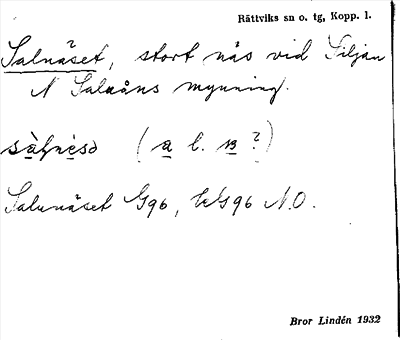 Rättviks sn o. tg, Kopp. l.
Salnäset, stort näs vid Siljan
N Salaåns mynning.
(a l. ?)
Salunäset G96, WG96 N.O.
Bror Lindén 1932